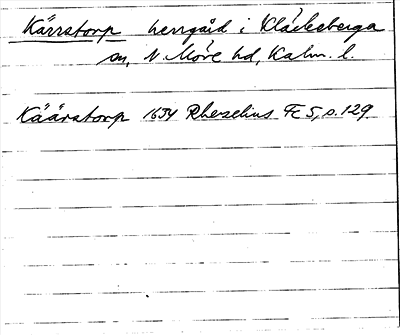 Kärrstorp herrgård i Kläckeberga
sn, N. Möre hd, Kalm. l.
Käärstorp 1634 Rhezelius Fc 5, s. 129